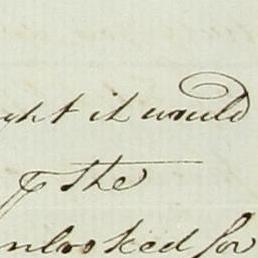 ght it would
of the
unlooked for